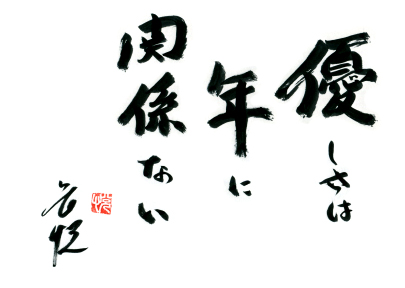 優しさは
年に
関係ない